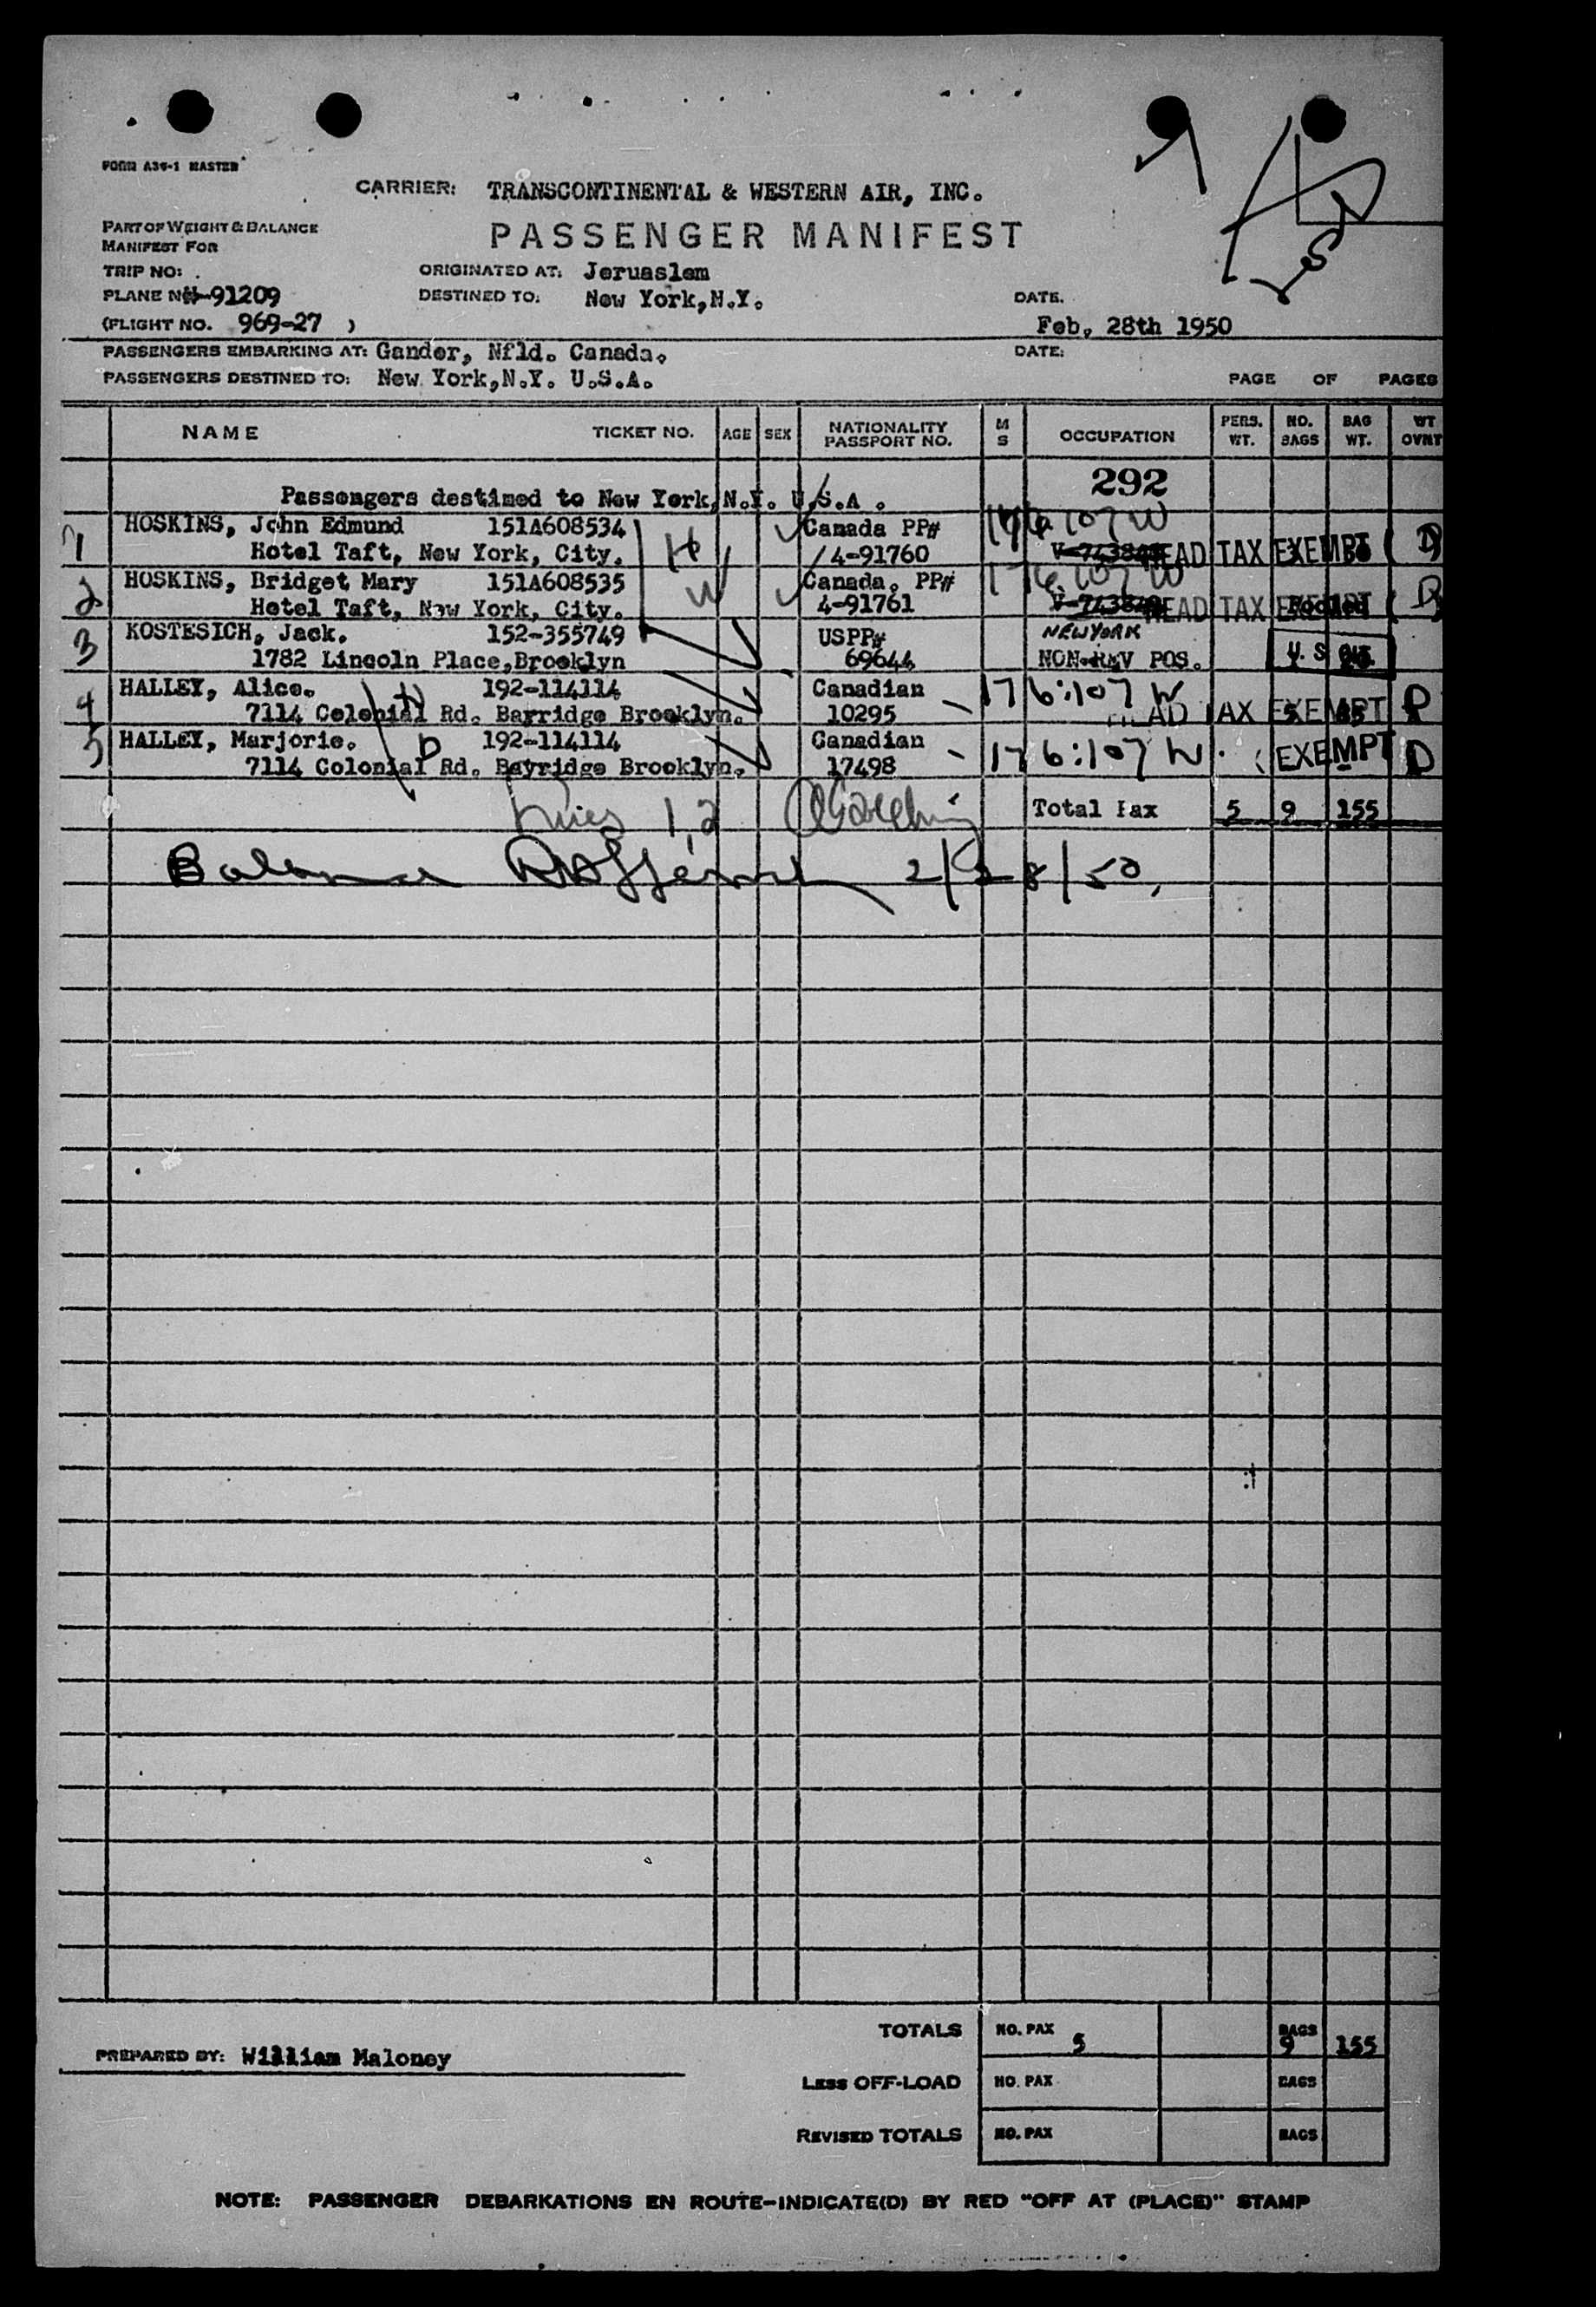 FORM A36-1 MASTER
CARRIER: TRANSCONTINENTAL & WESTERN AIR, INC.
PART OF WEIGHT & BALANCE
MANIFEST FOR
PASSENGER MANIFEST
TRIP NO:
ORIGINATED AT: Jeruaslem
PLANE NO. -91209
DESTINED TO: New York,N.Y.
DATE.
(FLIGHT NO. 969-27 )
Feb, 28th 1950
PASSENGERS EMBARKING AT: Gander, Nfld. Canada.
DATE:
PASSENGERS DESTINED TO: New York,N.Y. U.S.A.
PAGE OF PAGES
NAME TICKET NO. AGE SEX NATIONALITY PASSPORT NO. M S OCCUPATION PERS. WT. NO. BAGS BAG WT. WT OVNT
292
Passengers destined to New York,N.Y. U.S.A .
1 HOSKINS, John Edmund 151A608534 Canada PP# 176 107 W
Hotel Taft, New York, City. H 4-91760 HEAD TAX EXEMPT ( D
2 HOSKINS, Bridget Mary 151A608535 Canada. PP# 176 107 W
Hotel Taft, New York, City. W 4-91761 HEAD TAX EXEMPT
3 KOSTESICH, Jack. 152-355749 USPP# NEW YORK
1782 Lincoln Place,Brooklyn 69644 NON-REV POS. U. S
4 HALLEY, Alice. 192-114114 Canadian 176:107 W
7114 Colonial Rd. Bayridge Brooklyn. 10295 HEAD TAX EXEMPT
5 HALLEY, Marjorie. D 192-114114 Canadian 176:107 W
7114 Colonial Rd. Bayridge Brooklyn. 17498 (EXEMPT D
1,2
Total Pax 5 9 155
2/28/50,
TOTALS NO. PAX 5 BAGS 9 155
PREPARED BY: William Maloney
LESS OFF-LOAD NO. PAX BAGS
REVISED TOTALS NO. PAX BAGS
NOTE: PASSENGER DEBARKATIONS EN ROUTE-INDICATE(D) BY RED "OFF AT (PLACE)" STAMP